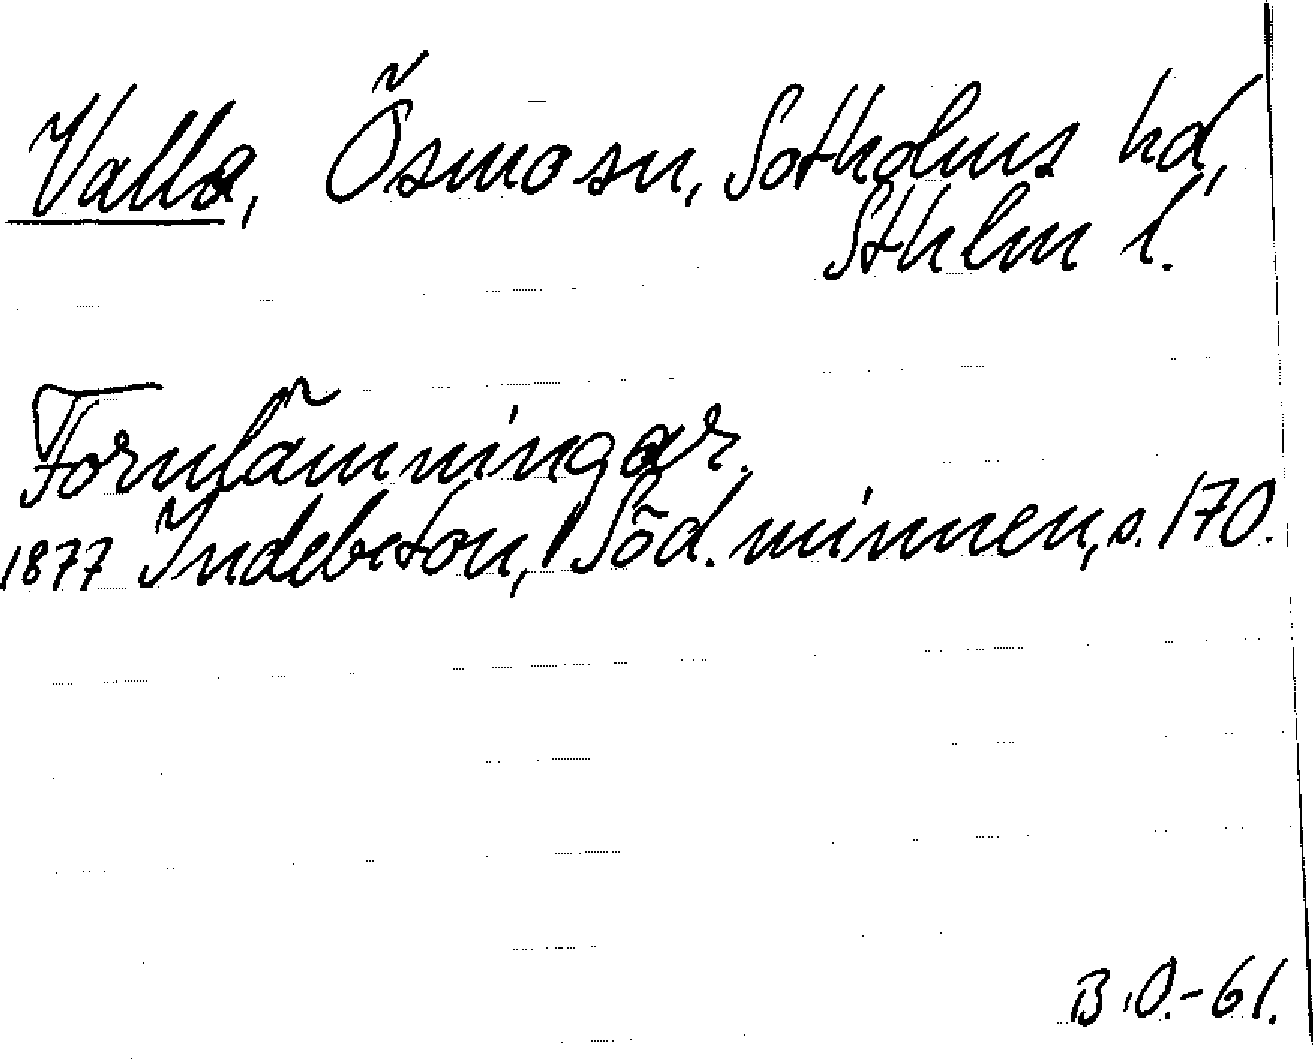 Valla, Ösmo sn, Sotholms hd,
Sthlm l.
Fornlämningar.
1877 Indebetou, Söd. minnen, s. 170.
B.O.-61.